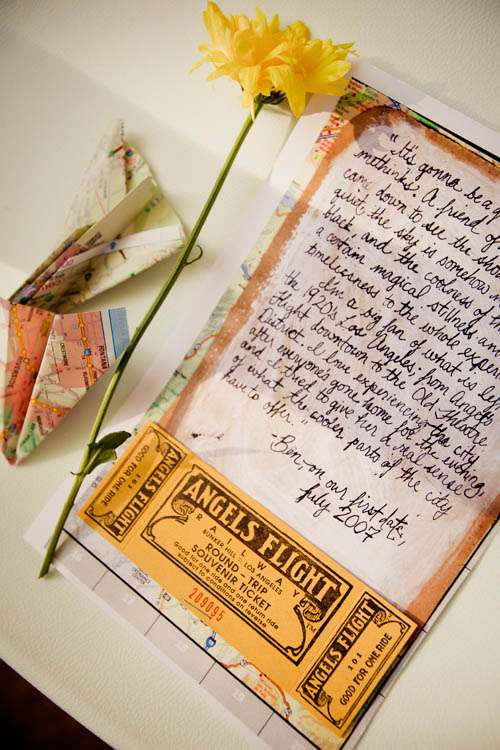 "It's gonna be a
methinks. A friend of
came down to see the
quiet the sky is somehow
black and the coolness of
a certain magical stillness and
timelessness to the whole exper
I'm a big fan of what is le
the 1920's Los Angeles, from Angels
Flight downtown to the Old Theatre
District. I love experiencing the city
after everyone's gone home for the evening,
and I tried to give her a real sense
of what the cooler parts of the city
have to offer."
-Ben, on our first date,
July 2007
ANGELS FLIGHT
GOOD FOR ONE RIDE
101
ANGELS FLIGHT
RAILWAY
BUNKER HILL LOS ANGELES
ROUND-TRIP
SOUVENIR TICKET
Good for one ride and one return ride
subject to condition on reverse
209095
TM
ANGELS FLIGHT
101
GOOD FOR ONE RIDE